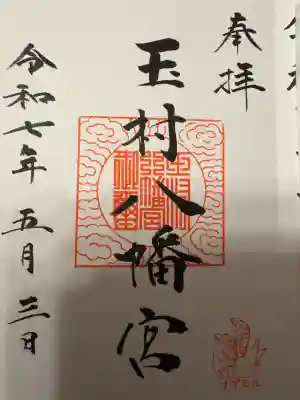 奉拝
玉村八幡宮
令和七年五月三日